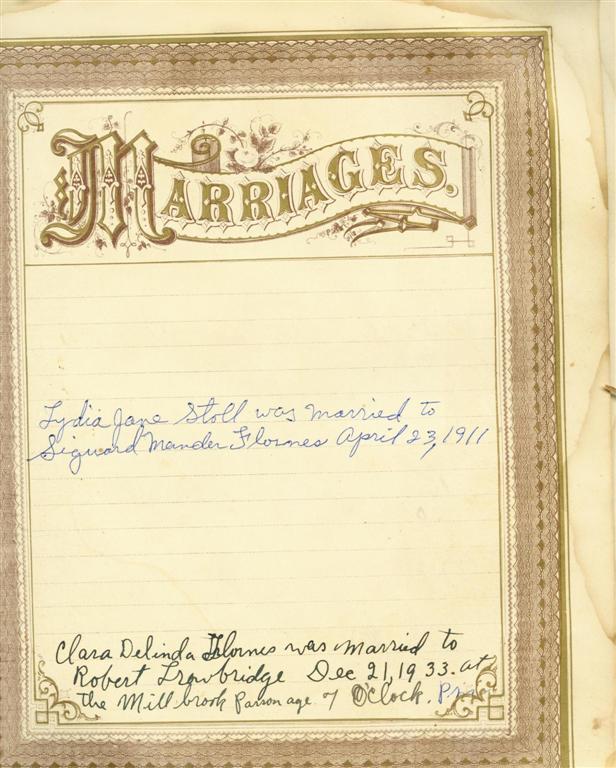 MARRIAGES.
Lydia Jane Stoll was married to
Sigward Mander Flormes April 23, 1911
Clara Delinda Flormes was married to
Robert Trowbridge Dec 21, 1933. at
the Millbrook Parsonage 7 O'Clock. P.m.